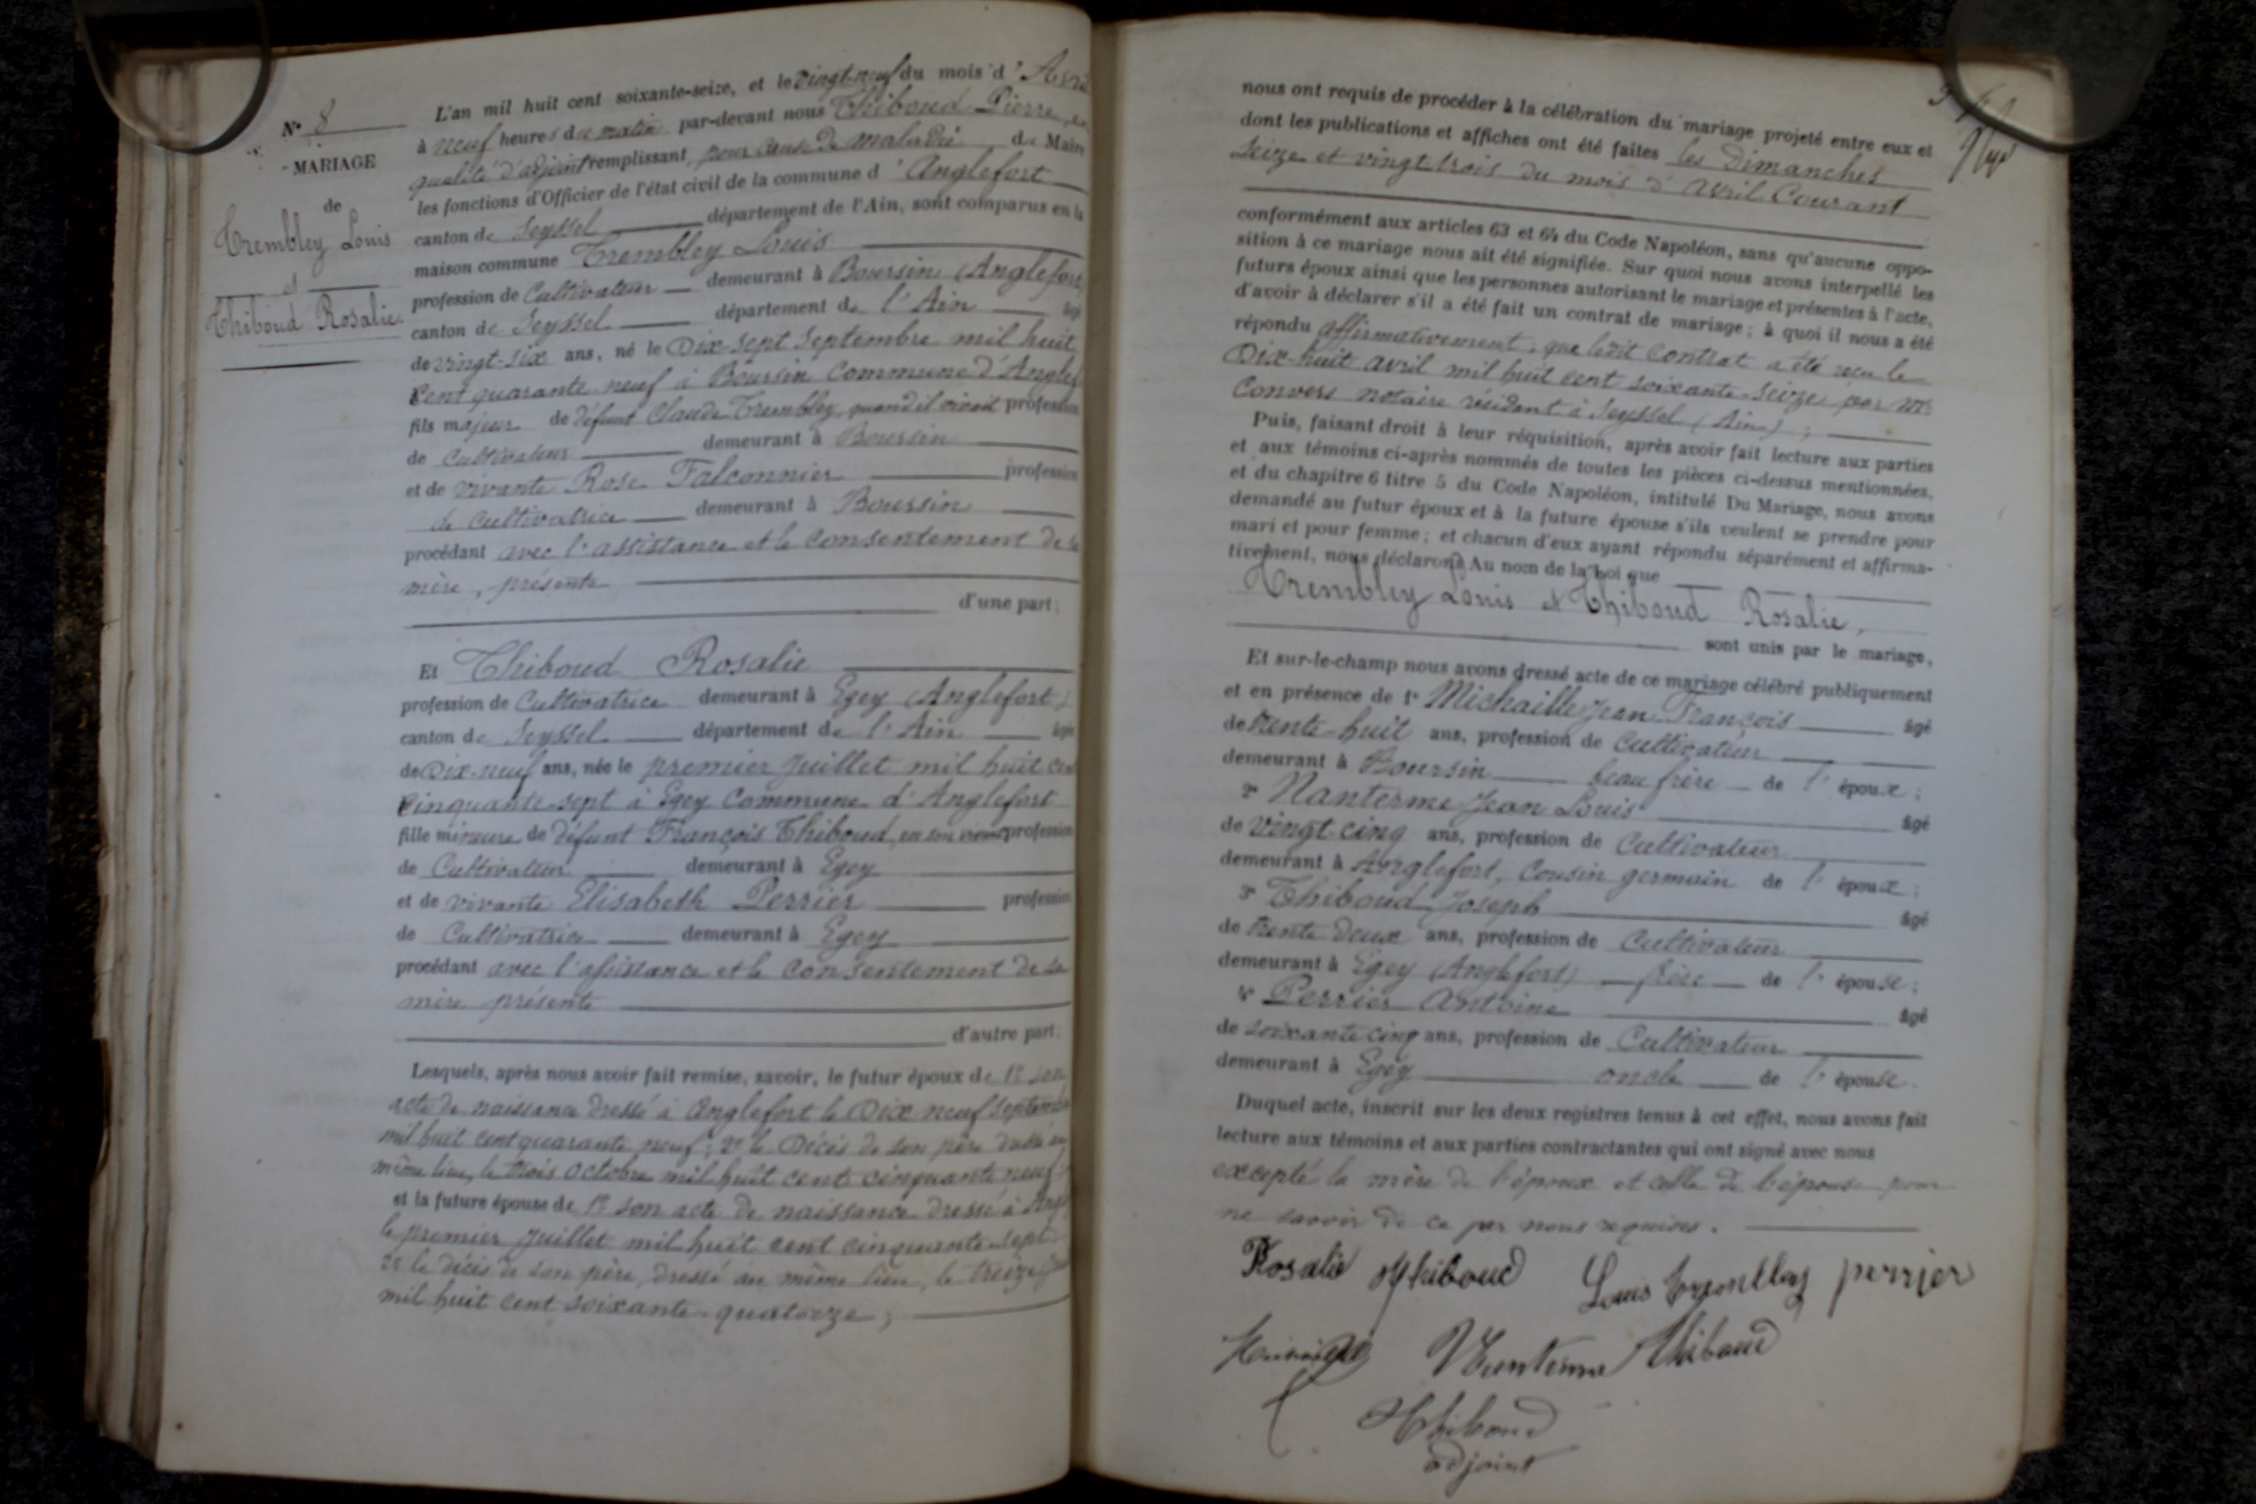 N° 8
MARIAGE
de
Trembley Louis
et
Thiboud Rosalie
L'an mil huit cent soixante-seize, et le vingt-neuf du mois d'Avril
à neuf heures du matin par-devant nous Thiboud Pierre, en
qualité d'adjoint remplissant pour cause de maladie du Maire
les fonctions d'Officier de l'état civil de la commune d'Anglefort
canton de Seyssel département de l'Ain, sont comparus en la
maison commune Trembley Louis
profession de Cultivateur demeurant à Boursin (Anglefort)
canton de Seyssel département de l'Ain âgé
de vingt-six ans, né le Dix-sept Septembre mil huit
cent quarante neuf à Boursin Commune d'Anglef
fils majeur de défunt Claude Trembley, quand il vivait profession
de Cultivateur demeurant à Boursin
et de vivante Rose Falconnier profession
de Cultivatrice demeurant à Boursin
procédant avec l'assistance et le consentement de sa
mère, présente
d'une part;
Et Thiboud Rosalie
profession de Cultivatrice demeurant à Egey (Anglefort)
canton de Seyssel département de l'Ain âgée
de Dix-neuf ans, née le premier Juillet mil huit cent
cinquante-sept à Egey Commune d'Anglefort
fille mineure de défunt François Thiboud, en son vivant profession
de Cultivateur demeurant à Egey
et de vivante Elisabeth Perrier profession
de Cultivatrice demeurant à Egey
procédant avec l'assistance et le consentement de sa
mère présente
d'autre part.
Lesquels, après nous avoir fait remise, savoir, le futur époux de 1° son
acte de naissance dressé à Anglefort le Dix neuf Septembre
mil huit cent quarante neuf; 2° le Décès de son père dressé au
même lieu, le trois Octobre mil huit cent cinquante neuf
et la future épouse de 1° son acte de naissance dressé à Angl
le premier Juillet mil huit cent cinquante-sept
2° le décès de son père, dressé au même lieu, le treize
mil huit cent soixante-quatorze;
nous ont requis de procéder à la célébration du mariage projeté entre eux et
dont les publications et affiches ont été faites les Dimanches
Seize et vingt trois du mois d'Avril Courant
conformément aux articles 63 et 64 du Code Napoléon, sans qu'aucune oppo-
sition à ce mariage nous ait été signifiée. Sur quoi nous avons interpellé les
futurs époux ainsi que les personnes autorisant le mariage et présentes à l'acte,
d'avoir à déclarer s'il a été fait un contrat de mariage; à quoi il nous a été
répondu affirmativement, que ledit contrat a été reçu le
Dix-huit avril mil huit cent soixante-seize par Me
Convers notaire résidant à Seyssel (Ain);
Puis, faisant droit à leur réquisition, après avoir fait lecture aux parties
et aux témoins ci-après nommés de toutes les pièces ci-dessus mentionnées,
et du chapitre 6 titre 5 du Code Napoléon, intitulé Du Mariage, nous avons
demandé au futur époux et à la future épouse s'ils veulent se prendre pour
mari et pour femme; et chacun d'eux ayant répondu séparément et affirma-
tivement, nous déclarons Au nom de la loi que
Trembley Louis et Thiboud Rosalie,
sont unis par le mariage,
Et sur-le-champ nous avons dressé acte de ce mariage célébré publiquement
et en présence de 1° Michaille Jean François âgé
de trente-huit ans, profession de Cultivateur
demeurant à Boursin beau frère de l'époux;
2° Nanterme Jean Louis âgé
de vingt-cinq ans, profession de Cultivateur
demeurant à Anglefort, Cousin germain de l'époux;
3° Thiboud Joseph âgé
de trente deux ans, profession de Cultivateur
demeurant à Egey (Anglefort) frère de l'épouse;
4° Perrier Antoine âgé
de soixante cinq ans, profession de Cultivateur
demeurant à Egey oncle de l'épouse.
Duquel acte, inscrit sur les deux registres tenus à cet effet, nous avons fait
lecture aux témoins et aux parties contractantes qui ont signé avec nous
excepté la mère de l'époux et celle de l'épouse pour
ne savoir de ce par nous requises.
Rosalie Thiboud Louis Trembley perrier
Nanterme Thiboud
Thiboud
adjoint